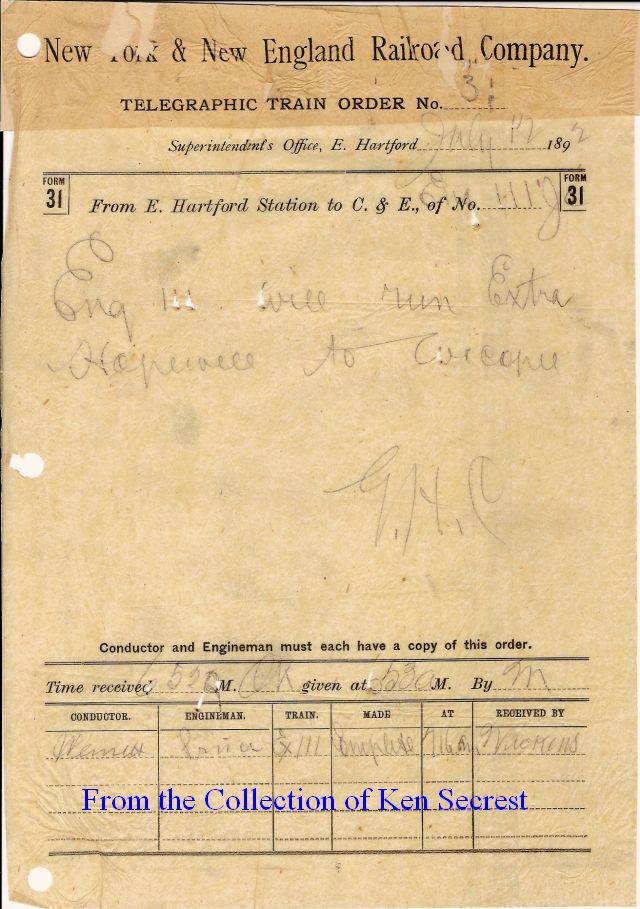 New York & New England Railroad Company.
TELEGRAPHIC TRAIN ORDER No. 31
Superintendent's Office, E. Hartford July 12 1892
FORM 31
FORM 31
From E. Hartford Station to C. & E., of No. Eng 111
Eng 111 will run Extra
Hopewell to Wicopee
G.H.C
Conductor and Engineman must each have a copy of this order.
Time received 652 a M. OK given at 653 a M. By M
CONDUCTOR. ENGINEMAN. TRAIN. MADE AT RECEIVED BY
Ex 111 Complete 716 am
From the Collection of Ken Secrest